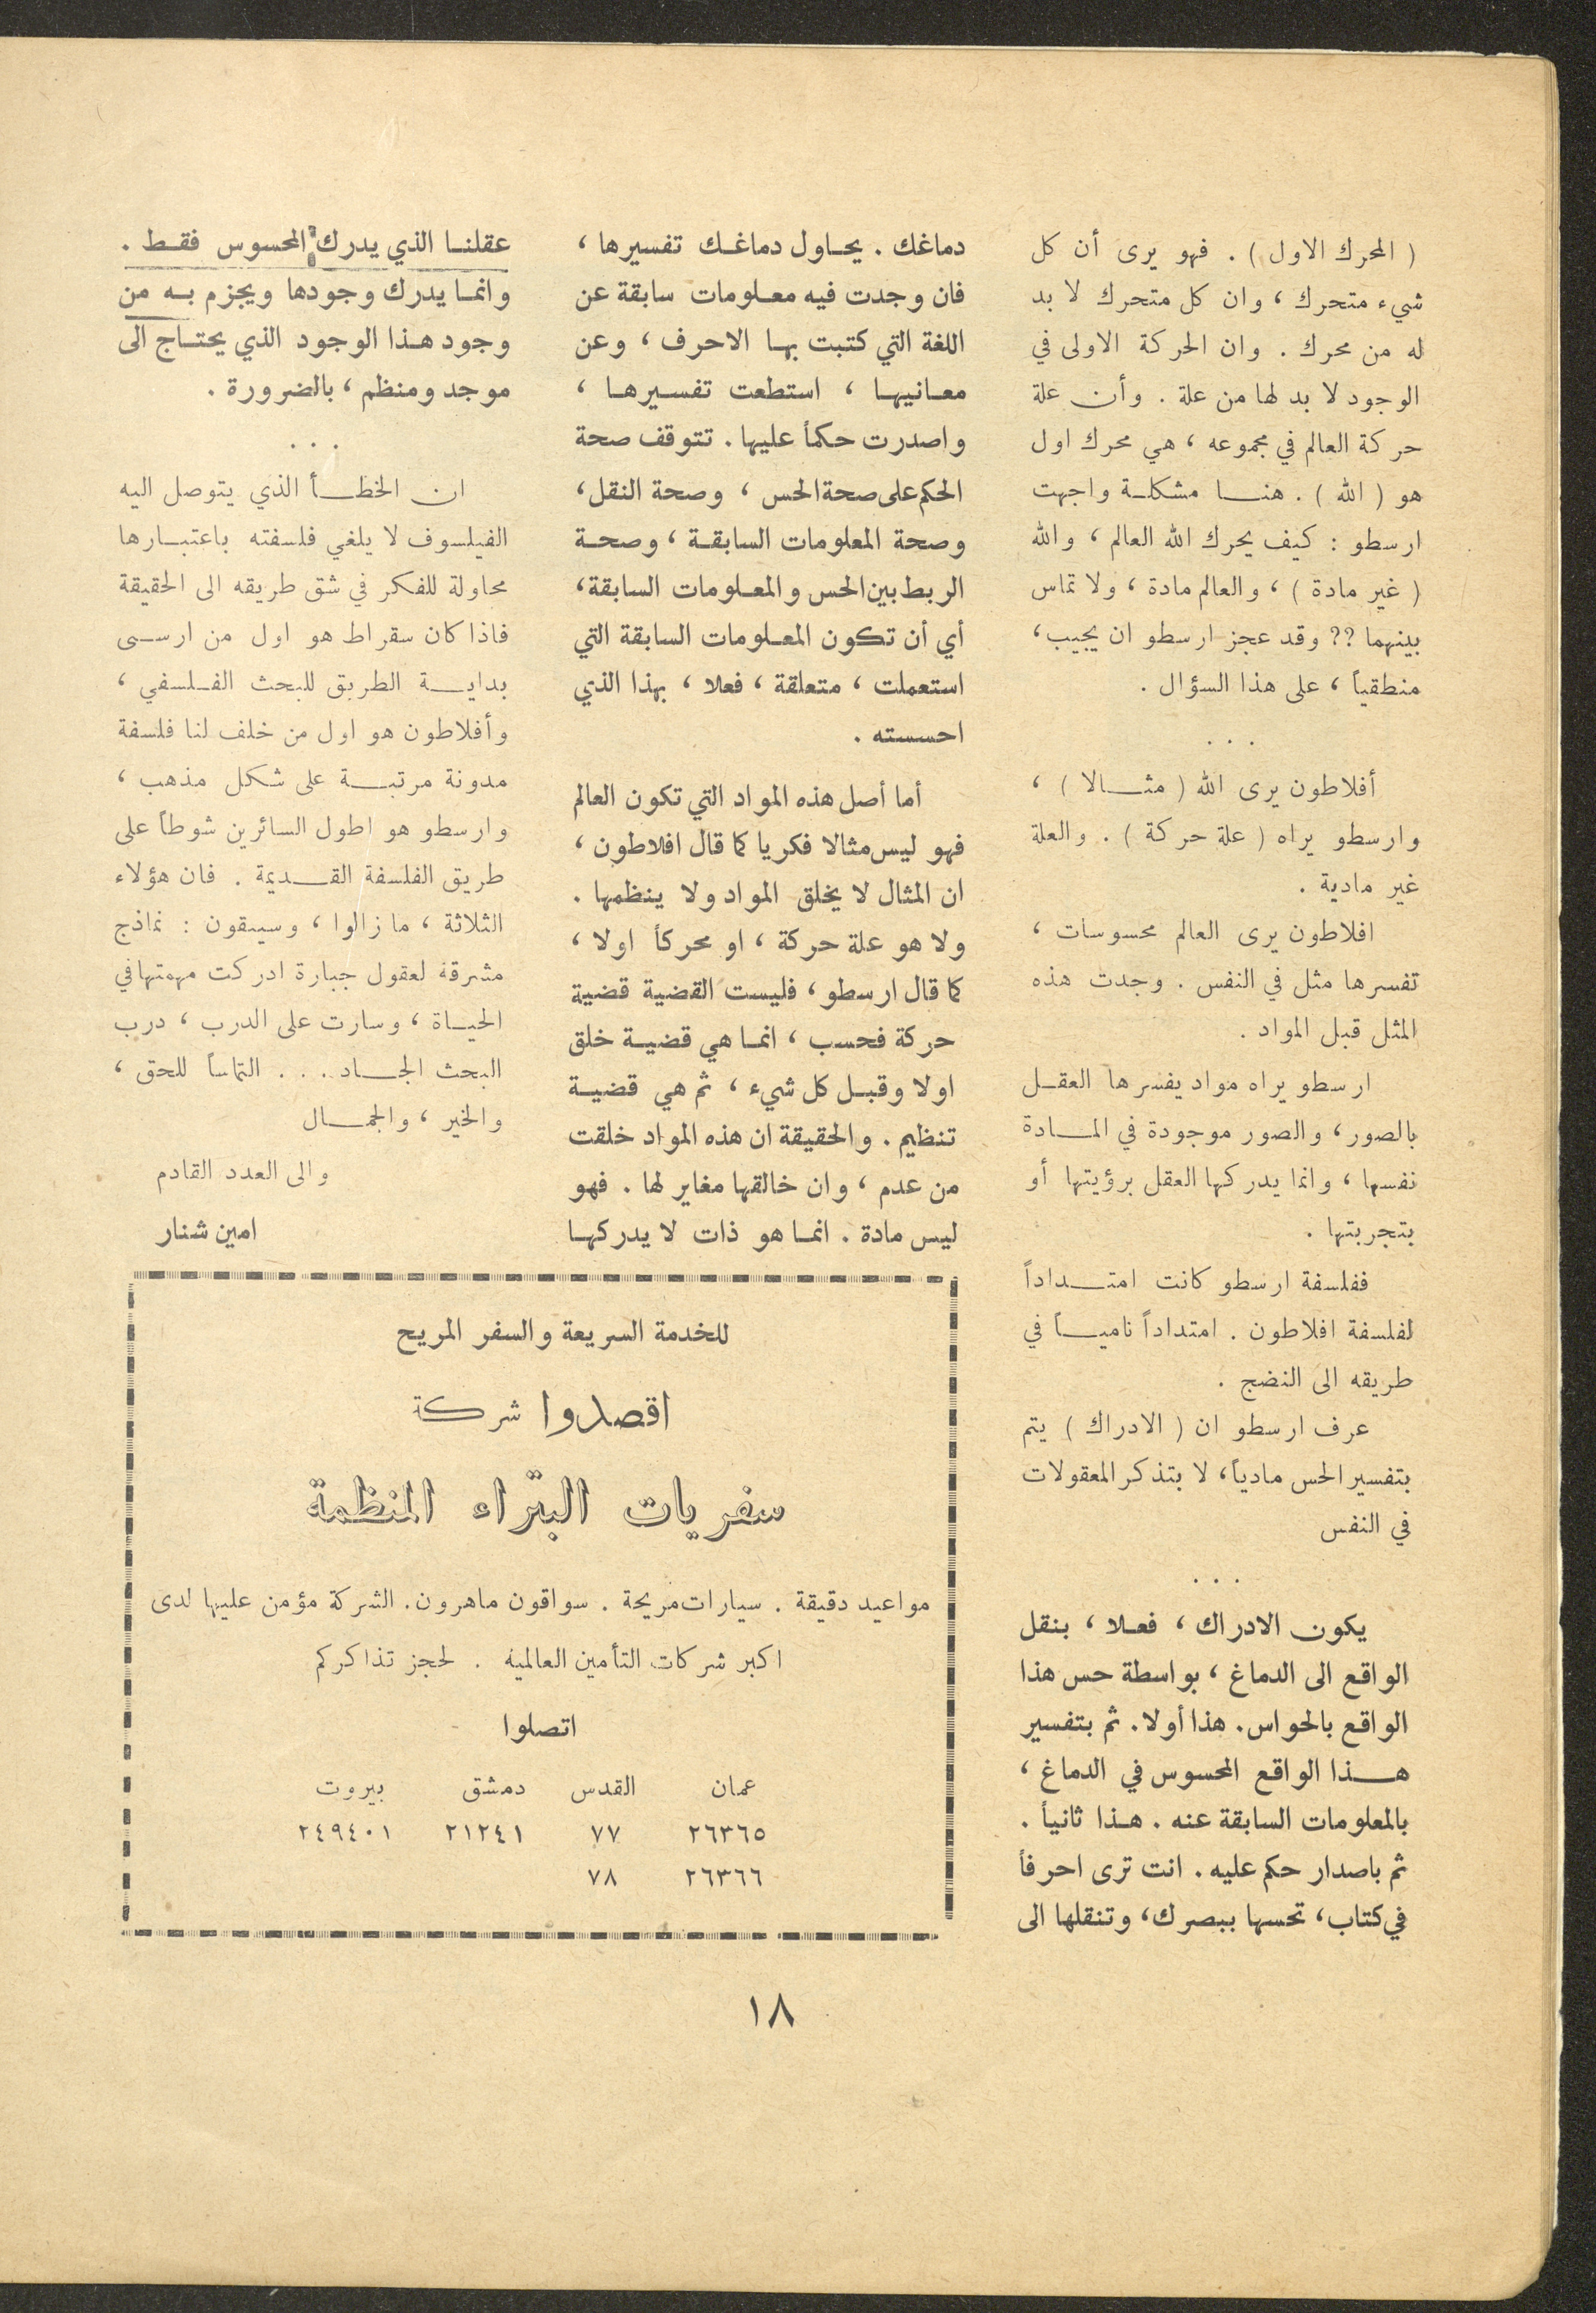 ( المحرك الاول ) . فهو يرى أن كل
شيء متحرك ، وان كل متحرك لا بد
له من محرك . وان الحركة الاولى في
الوجود لا بد لها من علة . وأن علة
حركة العالم في مجموعه ، هي محرك اول
هو ( الله ) . هنا مشكلة واجهت
ارسطو : كيف يحرك الله العالم ، والله
( غير مادة ) ، والعالم مادة ، ولا تماس
بينهما ?? وقد عجز ارسطو ان يجيب ،
منطقياً ، على هذا السؤال .
. . .
أفلاطون يرى الله ( مثالا ) ،
وارسطو يراه ( علة حركة ) . والعلة
غير مادية .
افلاطون يرى العالم محسوسات ،
تفسرها مثل في النفس . وجدت هذه
المثل قبل المواد .
ارسطو يراه مواد يفسرها العقل
بالصور ، والصور موجودة في المادة
نفسها ، وانما يدركها العقل برؤيتها أو
بتجربتها .
ففلسفة ارسطو كانت امتداداً
لفلسفة افلاطون . امتداداً نامياً في
طريقه الى النضج .
عرف ارسطو ان ( الادراك ) يتم
بتفسير الحس مادياً ، لا بتذكر المعقولات
في النفس
. . .
يكون الادراك ، فعلا ، بنقل
الواقع الى الدماغ ، بواسطة حس هذا
الواقع بالحواس . هذا أولا . ثم بتفسير
هذا الواقع المحسوس في الدماغ ،
بالمعلومات السابقة عنه . هذا ثانياً .
ثم باصدار حكم عليه . انت ترى احرفاً
في كتاب ، تحسها ببصرك ، وتنقلها الى
دماغك . يحاول دماغك تفسيرها ،
فان وجدت فيه معلومات سابقة عن
اللغة التي كتبت بها الاحرف ، وعن
معانيها ، استطعت تفسيرها ،
واصدرت حكماً عليها . تتوقف صحة
الحكم على صحة الحس ، وصحة النقل ،
وصحة المعلومات السابقة ، وصحة
الربط بين الحس والمعلومات السابقة ،
أي أن تكون المعلومات السابقة التي
استعملت ، متعلقة ، فعلا ، بهذا الذي
احسسته .
أما أصل هذه المواد التي تكون العالم
فهو ليس مثالا فكريا كما قال افلاطون ،
ان المثال لا يخلق المواد ولا ينظمها .
ولا هو علة حركة ، او محركاً اولا ،
كما قال ارسطو ، فليست القضية قضية
حركة فحسب ، انما هي قضية خلق
اولا وقبل كل شيء ، ثم هي قضية
تنظيم . والحقيقة ان هذه المواد خلقت
من عدم ، وان خالقها مغاير لها . فهو
ليس مادة . انما هو ذات لا يدركها
عقلنا الذي يدرك المحسوس فقط .
وانما يدرك وجودها ويجزم به من
وجود هذا الوجود الذي يحتاج الى
موجد ومنظم ، بالضرورة .
. . .
ان الخطأ الذي يتوصل اليه
الفيلسوف لا يلغي فلسفته باعتبارها
محاولة للفكر في شق طريقه الى الحقيقة
فاذا كان سقراط هو اول من ارسى
بداية الطريق للبحث الفلسفي ،
وأفلاطون هو اول من خلف لنا فلسفة
مدونة مرتبة على شكل مذهب ،
وارسطو هو اطول السائرين شوطاً على
طريق الفلسفة القديمة . فان هؤلاء
الثلاثة ، ما زالوا ، وسيبقون : نماذج
مشرقة لعقول جبارة ادركت مهمتها في
الحياة ، وسارت على الدرب ، درب
البحث الجاد . . . التماساً للحق ،
والخير ، والجمال
والى العدد القادم
امين شنار
للخدمة السريعة والسفر المريح
اقصدوا شركة
سفريات البتراء المنظمة
مواعيد دقيقة . سيارات مريحة . سواقون ماهرون . الشركة مؤمن عليها لدى
اكبر شركات التأمين العالمية . لحجز تذاكركم
اتصلوا
عمان القدس دمشق بيروت
٢٦٣٦٥ ٧٧ ٢١٢٤١ ٢٤٩٤٠١
٢٦٣٦٦ ٧٨
١٨